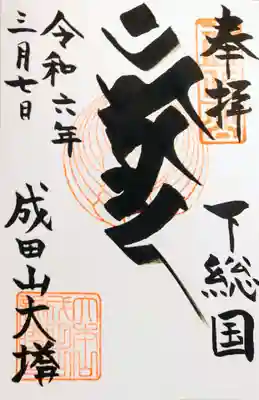 奉拝
下総国
令和六年
三月七日
成田山大塔